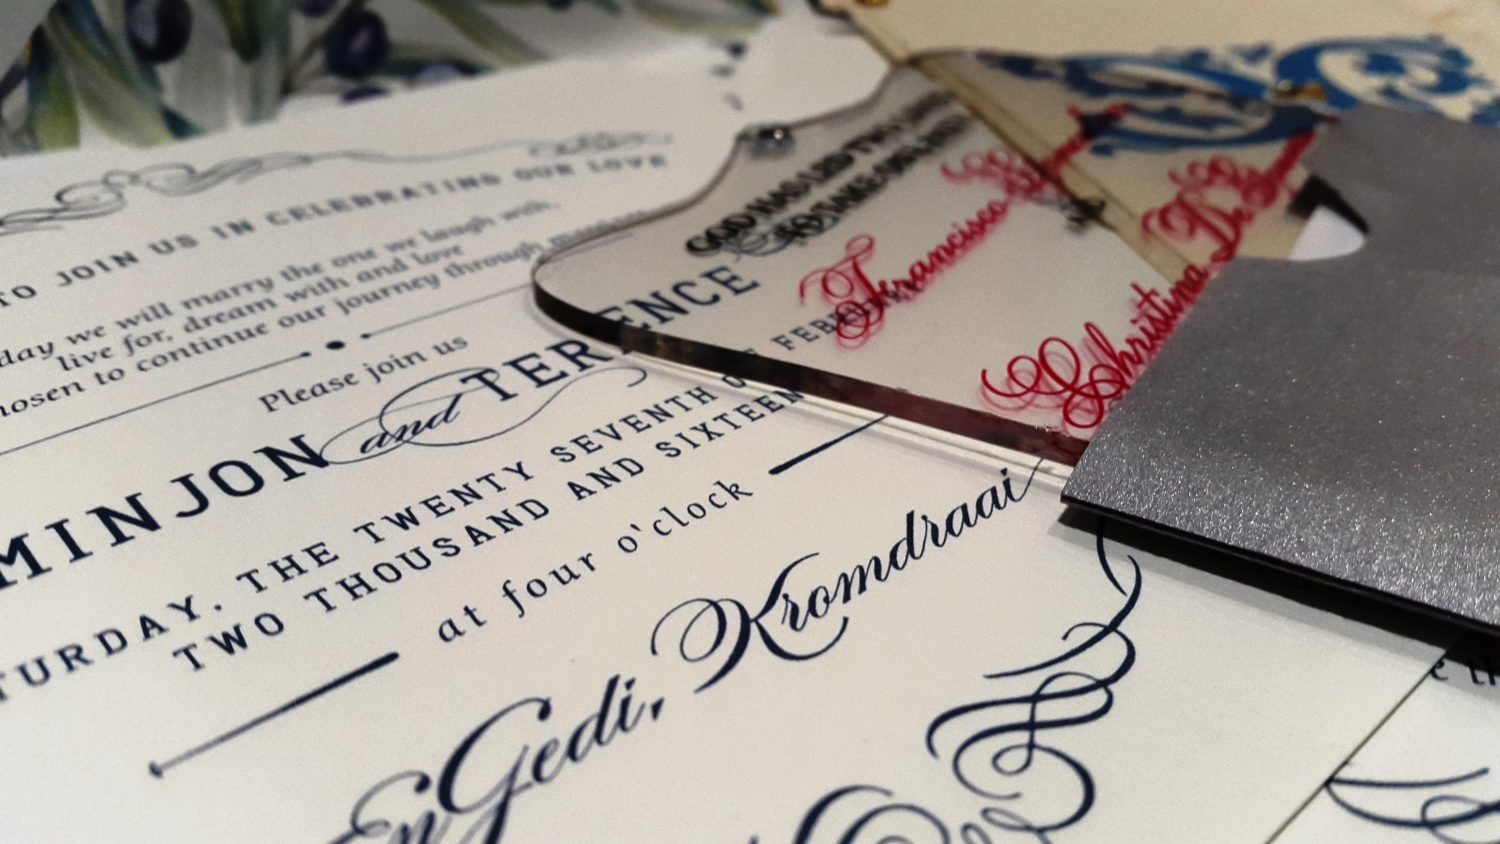 TO JOIN US IN CELEBRATING OUR LOVE
day we will marry the one we laugh with,
live for, dream with and love
hosen to continue our journey through
Please join us
MINJON and TERENCE
TURDAY, THE TWENTY SEVENTH OF FEBRUARY
TWO THOUSAND AND SIXTEEN
at four o'clock
En Gedi, Kromdraai
GOD HAS LED TWO
TO TAKE ON
Francisco
Christina De